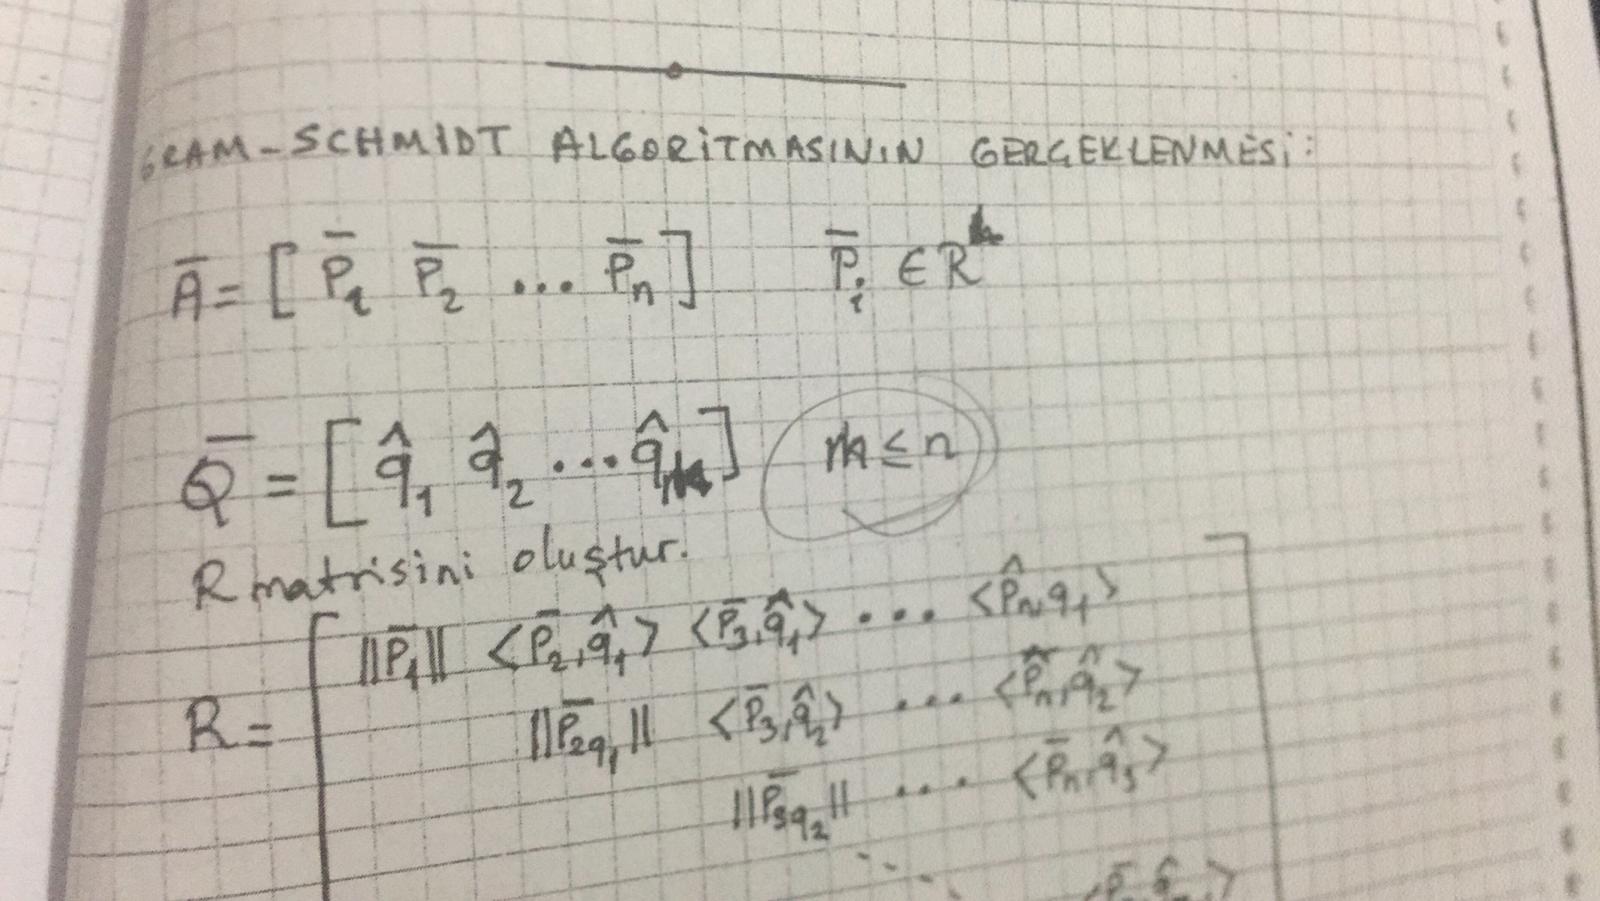 GRAM-SCHMIDT ALGORİTMASININ GERÇEKLENMESİ:
A̅ = [ P̅₁ P̅₂ ... P̅ₙ ] P̅ᵢ ∈ R
Q̅ = [ q̂₁ q̂₂ ... q̂ ] m ≤ n
R matrisini oluştur.
‖P̅₁‖ <P̅₂,q̂₁> <P̅₃,q̂₁> ... <P̂ₙ,q₁>
R = ‖P̅₂q₁‖ <P̅₃,q̂₂> ... <P̅ₙ,q̂₂>
‖P̅₃q₂‖ ... <P̅ₙ,q̂₃>